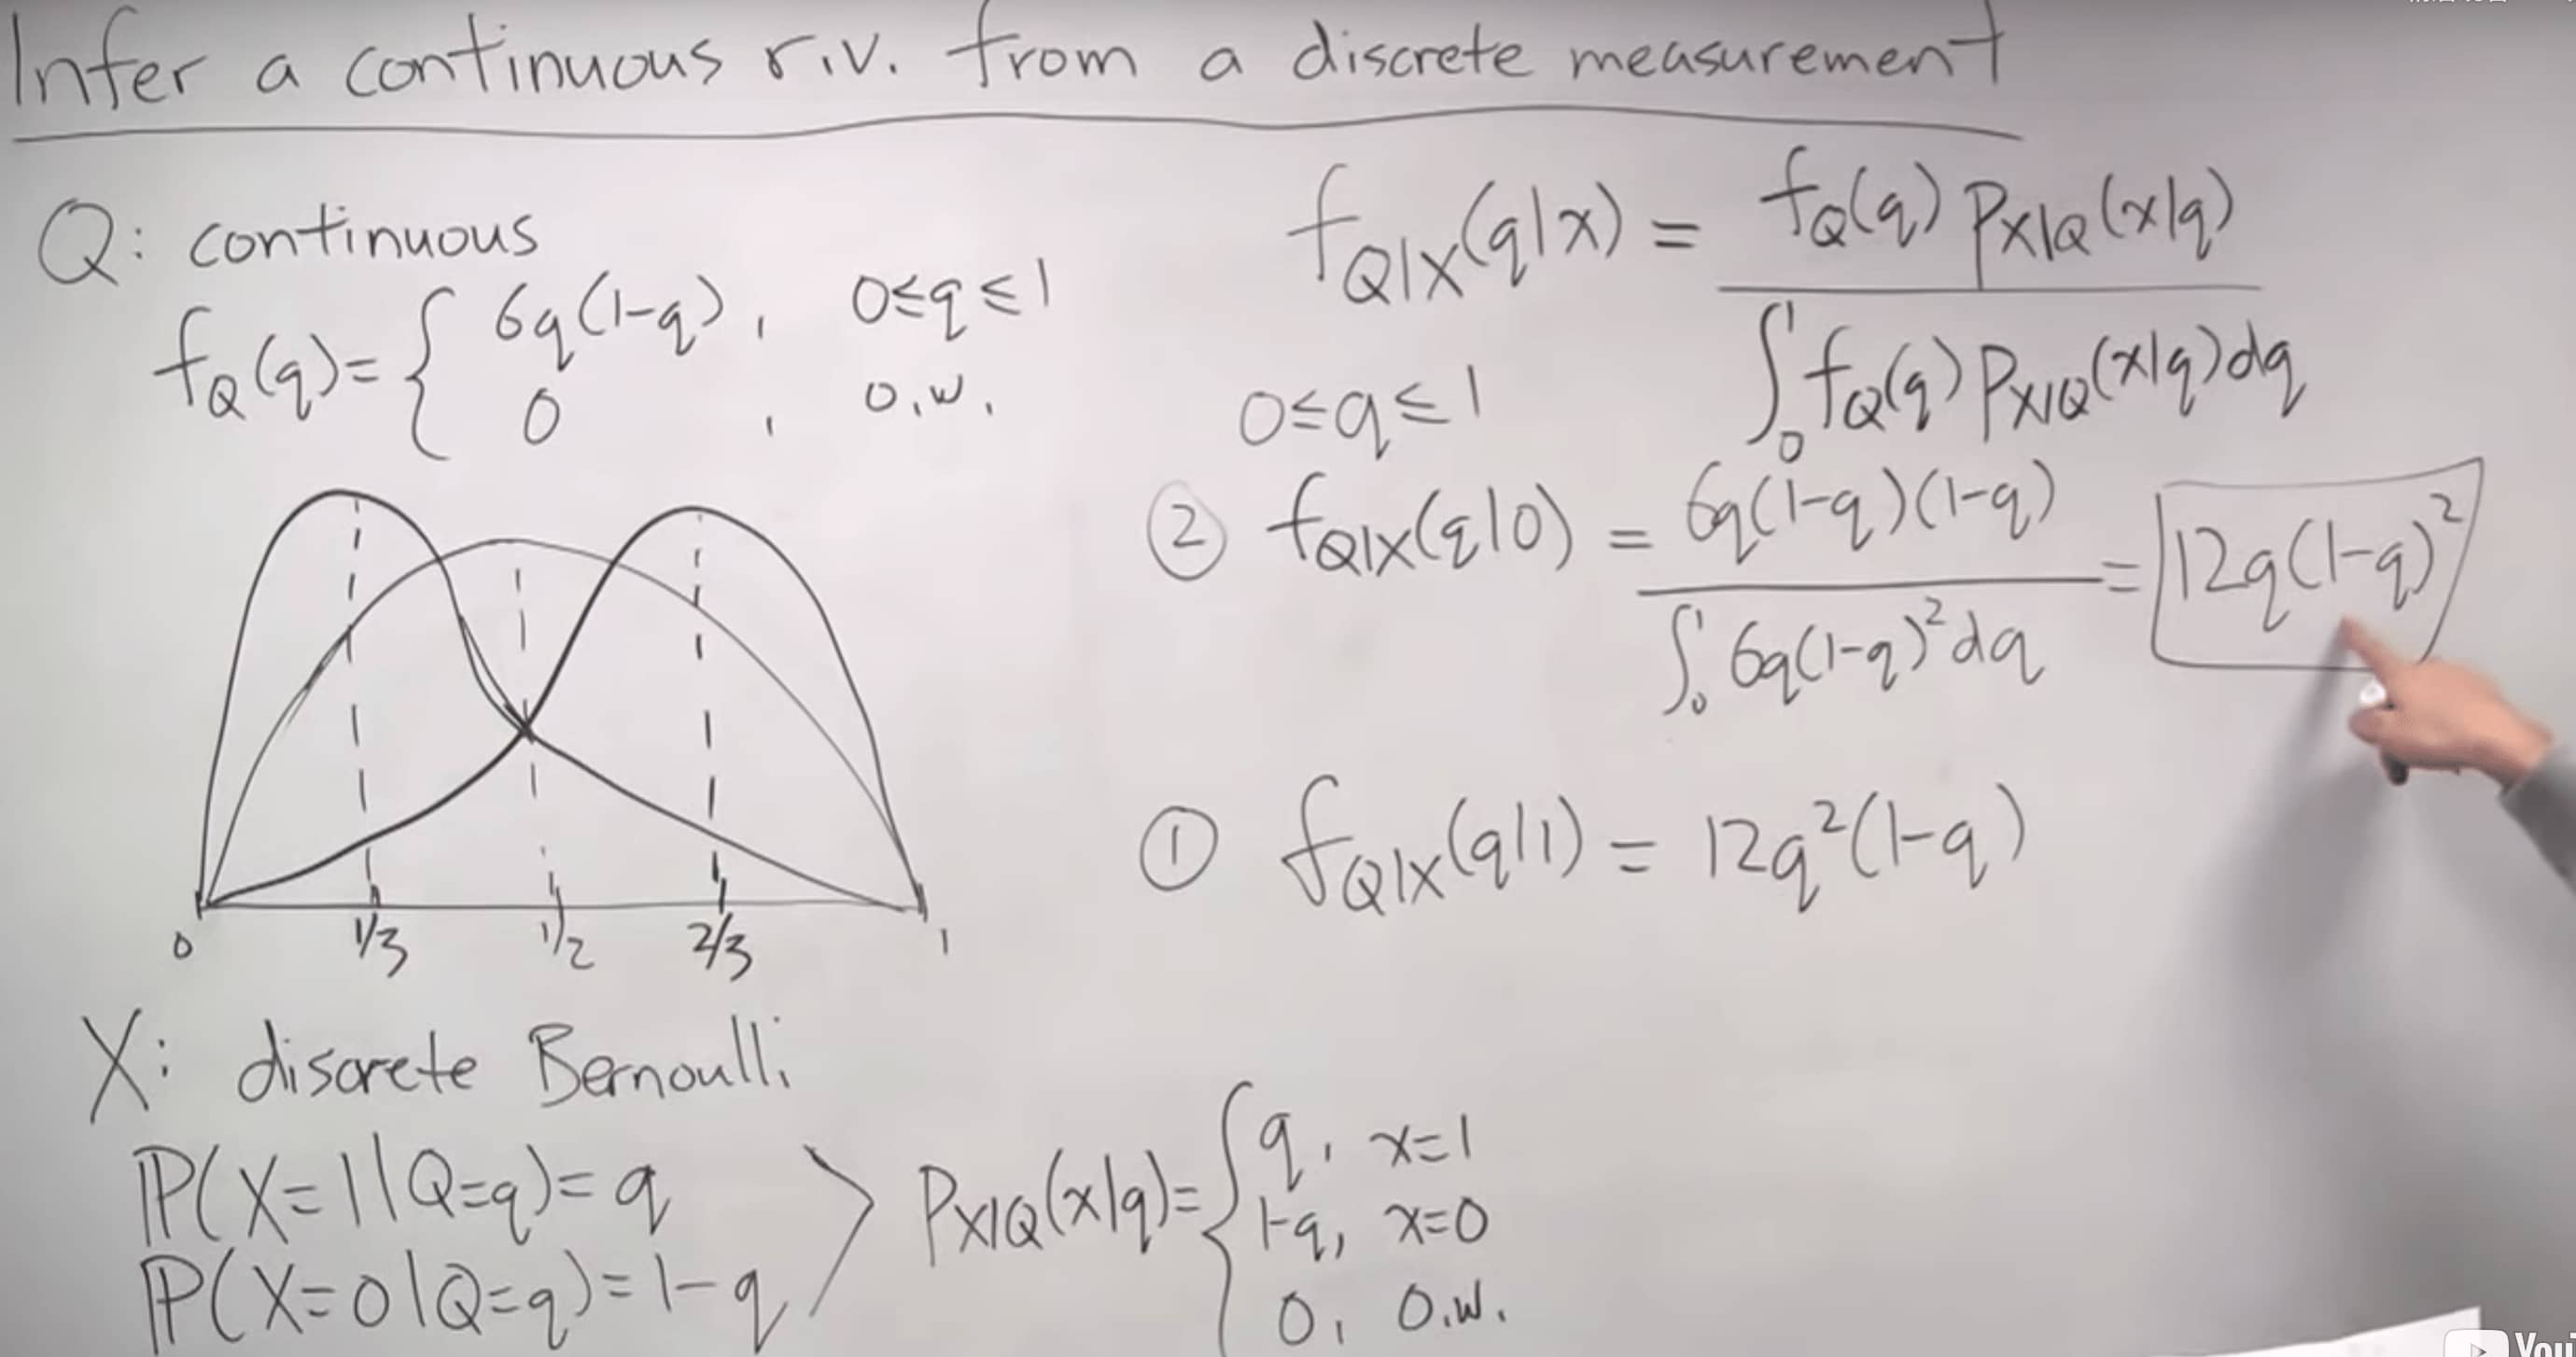 Infer a continuous r.v. from a discrete measurement
Q: continuous
f_Q(q) = { 6q(1-q), 0≤q≤1
0, o.w.
0 1/3 1/2 2/3 1
X: discrete Bernoulli
ℙ(X=1|Q=q)=q
ℙ(X=0|Q=q)=1-q
p_{X|Q}(x|q) = { q, x=1
1-q, x=0
0, o.w.
f_{Q|X}(q|x) = f_Q(q) p_{X|Q}(x|q) / ∫_0^1 f_Q(q) p_{X|Q}(x|q) dq
0≤q≤1
② f_{Q|X}(q|0) = 6q(1-q)(1-q) / ∫_0^1 6q(1-q)^2 dq = 12q(1-q)^2
① f_{Q|X}(q|1) = 12q^2(1-q)